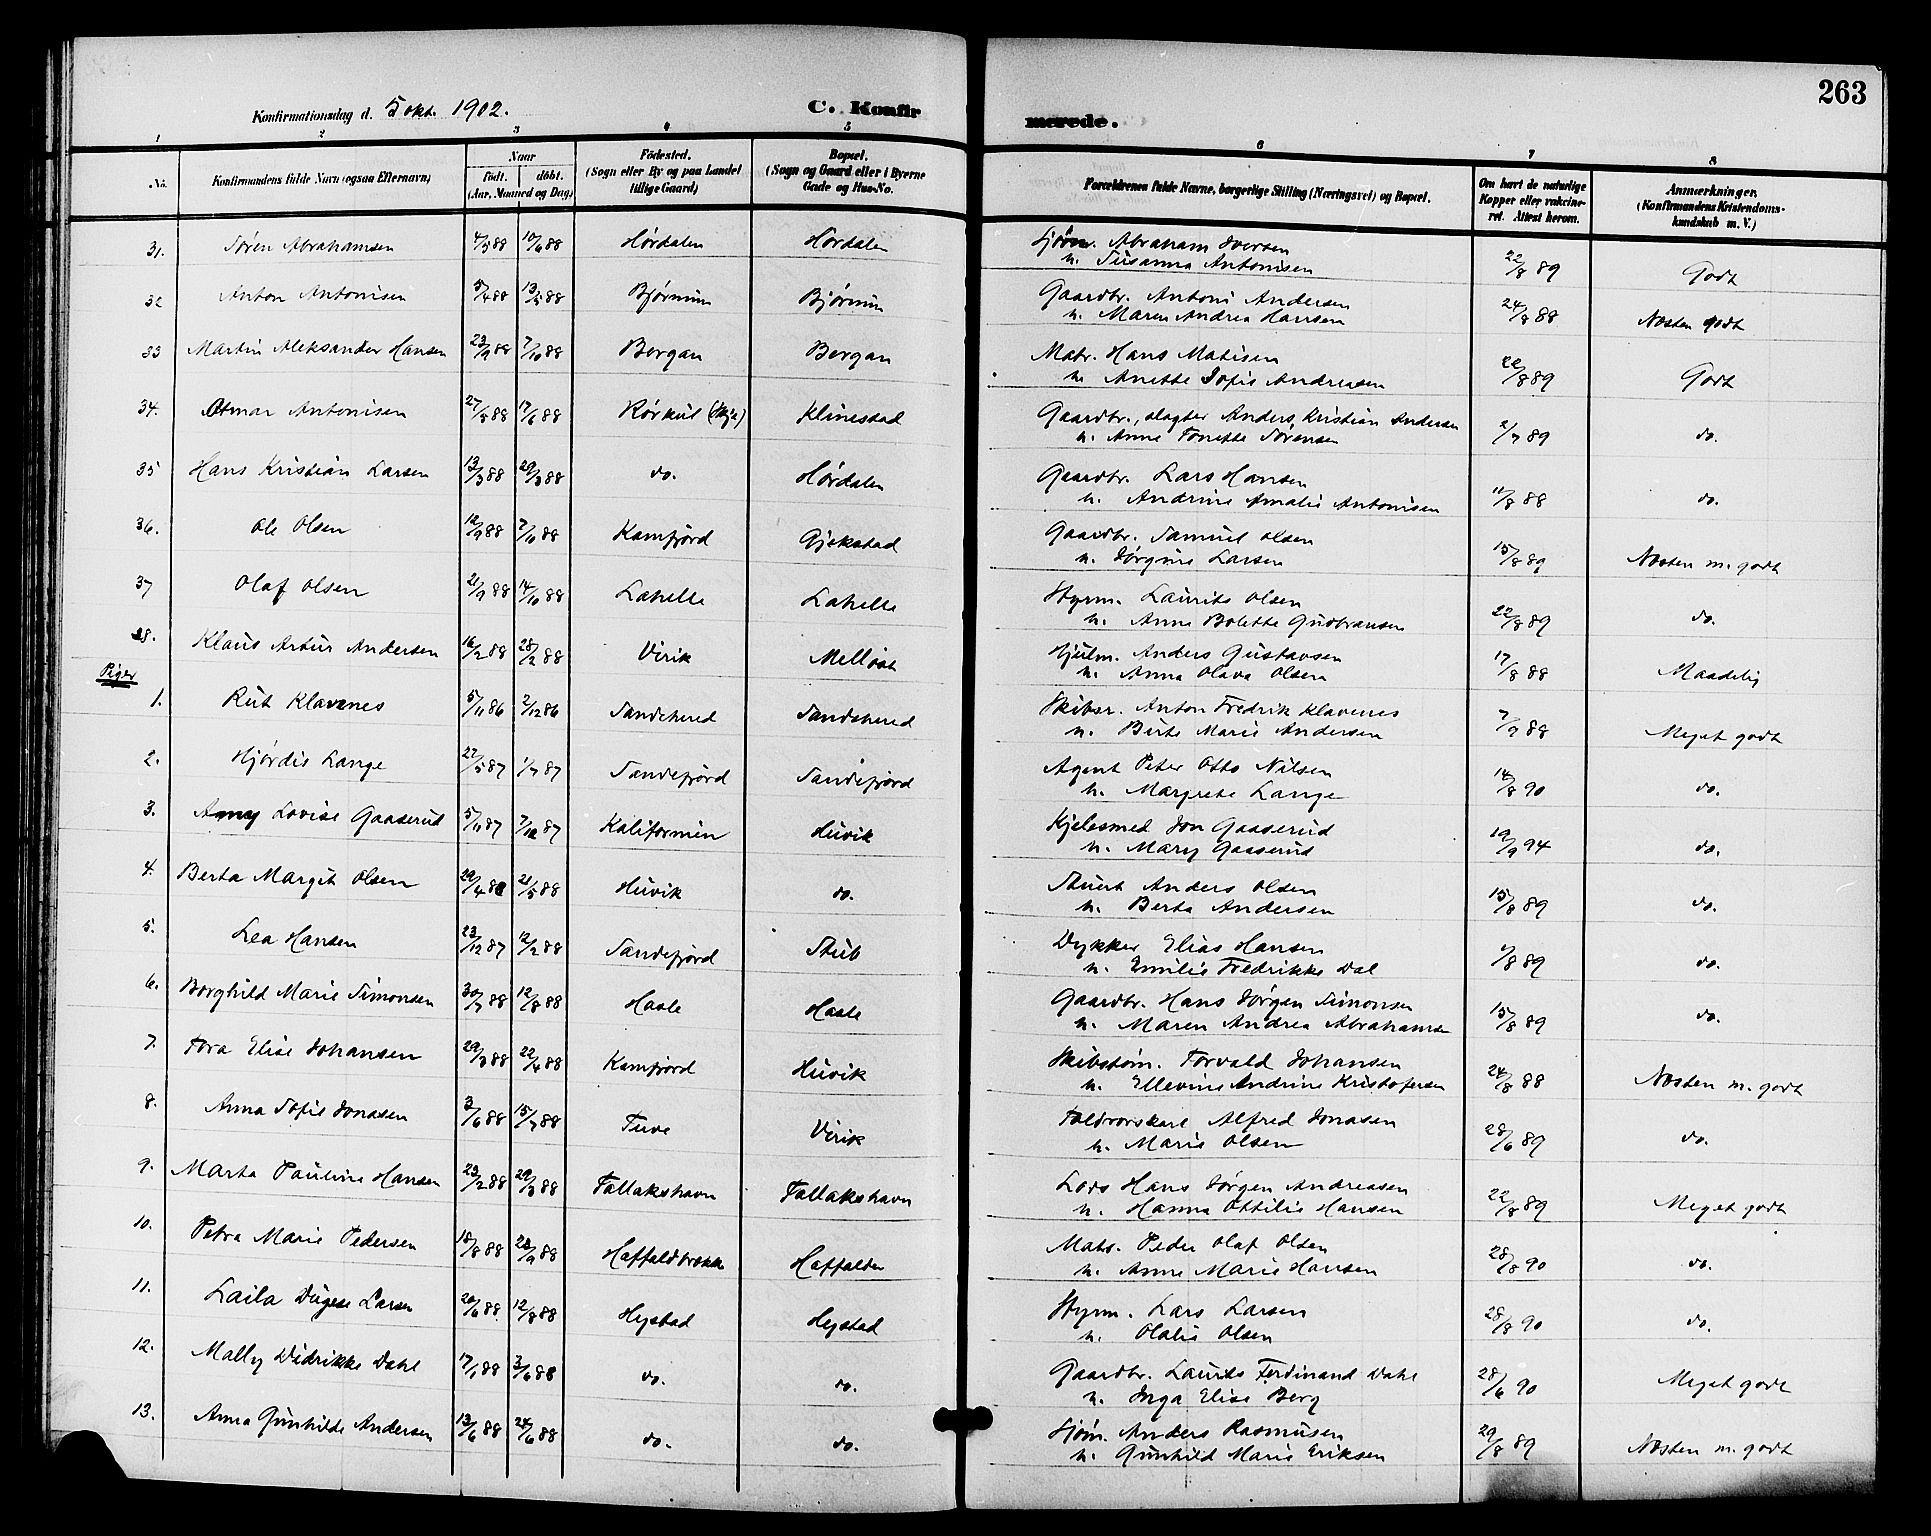 263
Konfirmationsdag d. 5 okt. 1902. C. Konfirmerede.
1 2 3 4 5 6 7 8
No. Konfirmandens fulde Navn (ogsaa Efternavn) Naar født. døbt. (Aar, Maaned og Dag) Födested. (Sogn eller By og paa Landet tillige Gaard) Bopæl. (Sogn og Gaard eller i Byerne Gade og Hus-No. Forældrenes fulde Navne, borgerlige Stilling (Næringsvei) og Bopæl. Om havt de naturlige Kopper eller vakcineret. Attest herom. Anmærkninger. (Konfirmandens Kristendomskundskab m. V.)
31. Søren Abrahamsen 4/5 88 10/6 88 Hørdalen Hørdalen Sjøm. Abraham Iversen
u. Susanna Antonisen 22/8 89 Godt
32 Anton Antonisen 5/4 88 13/5 88 Bjørnum Bjørnum Gaardbr. Antoni Andersen
u. Maren Andrea Hansen 24/8 88 Næsten godt
33 Martin Aleksander Hansen 23/9 88 7/10 88 Bergan Bergan Matr. Hans Matisen
u. Anette Sofie Andreasen 22/8 89 Godt
34. Otmar Antonisen 27/5 88 17/6 88 Rørkul Klinestad Gaardbr., slagter Anders Kristian Andersen
u. Anne Tonette Sørensen 2/7 89 do.
35 Hans Kristian Larsen 13/3 88 29/3 88 do. Hørdalen Gaardbr. Lars Hansen
u. Andrine Amalie Antonisen 11/8 88 do.
36. Ole Olsen 12/9 88 7/10 88 Kamfjord Gjekstad Gaardbr. Samuel Olsen
u. Jørgine Larsen 15/8 89 Næsten m. godt
37 Olaf Olsen 21/9 88 14/10 88 Lahelle Lahelle Styrm. Laurits Olsen
u. Anne Bolette Gudbransen 22/8 89 do.
38. Klaus Artur Andersen 16/2 88 28/2 88 Virik Melløst Hjulm. Anders Gustavsen
u. Anna Olava Olsen 17/8 88 Maadelig
Piger
1. Rut Klavenes 5/11 86 2/12 86 Sandeherred Sandeherred Skibsr. Anton Fredrik Klavenes
u. Birte Marie Andersen 7/9 88 Meget godt
2. Hjørdis Lange 27/5 87 1/7 87 Sandefjord Sandefjord Agent Peter Otto Nilsen
u. Margrete Lange 14/8 90 do.
3. Amy Lovise Gaaserud 5/11 87 7/12 87 Kalifornien Huvik Kjelesmed Jon Gaaserud
u. Mary Gaaserud 19/9 94 do.
4. Berta Margit Olsen 29/4 88 21/5 88 Huvik do. Stuert Anders Olsen
u. Berta Andersen 15/8 89 do.
5. Lea Hansen 23/12 87 12/2 88 Sandefjord Stub Dykker Elias Hansen
u. Emilie Fredrikke Dal 1/8 89 do.
6. Borghild Marie Simonsen 30/7 88 12/8 88 Hasle Hasle Gaardbr. Hans Jørgen Simonsen
u. Maren Andrea Abrahamsen 15/8 89 do.
7. Tora Elise Johansen 29/3 88 22/4 88 Kamfjord Huvik Skibstøm. Torvald Johansen
u. Ellevine Andrine Kristofersen 24/8 88 Næsten m. godt
8. Anna Sofie Jonasen 3/6 88 15/7 88 Tuve Virik Toldrorskarl Alfred Jonasen
u. Marie Olsen 28/6 89 do.
9. Marta Pauline Hansen 23/2 88 29/3 88 Tallakshavn Tallakshavn Lods Hans Jørgen Andreasen
u. Hanna Ottilie Hansen 22/8 89 Meget godt
10. Petra Marie Pedersen 18/8 88 23/9 88 Haffaldbrekke Haffalden Matr. Peder Olaf Olsen
u. Anne Marie Hansen 28/8 90 do.
11. Laila Larsen 20/6 88. 12/8 88 Hystad Hystad Styrm. Lars Larsen
u. Olalie Olsen 28/8 90 do.
12. Mally Didrikke Dahl 17/1 88 3/6 88 do. do. Gaardbr. Laurits Ferdinand Dahl
u. Inga Elise Berg 28/6 90 Meget godt
13. Anna Gunhilde Andersen 13/6 88 24/6 88 do. do. Sjøm. Anders Rasmusen
u. Gunhild Marie Eriksen 29/8 89 Næsten m. godt